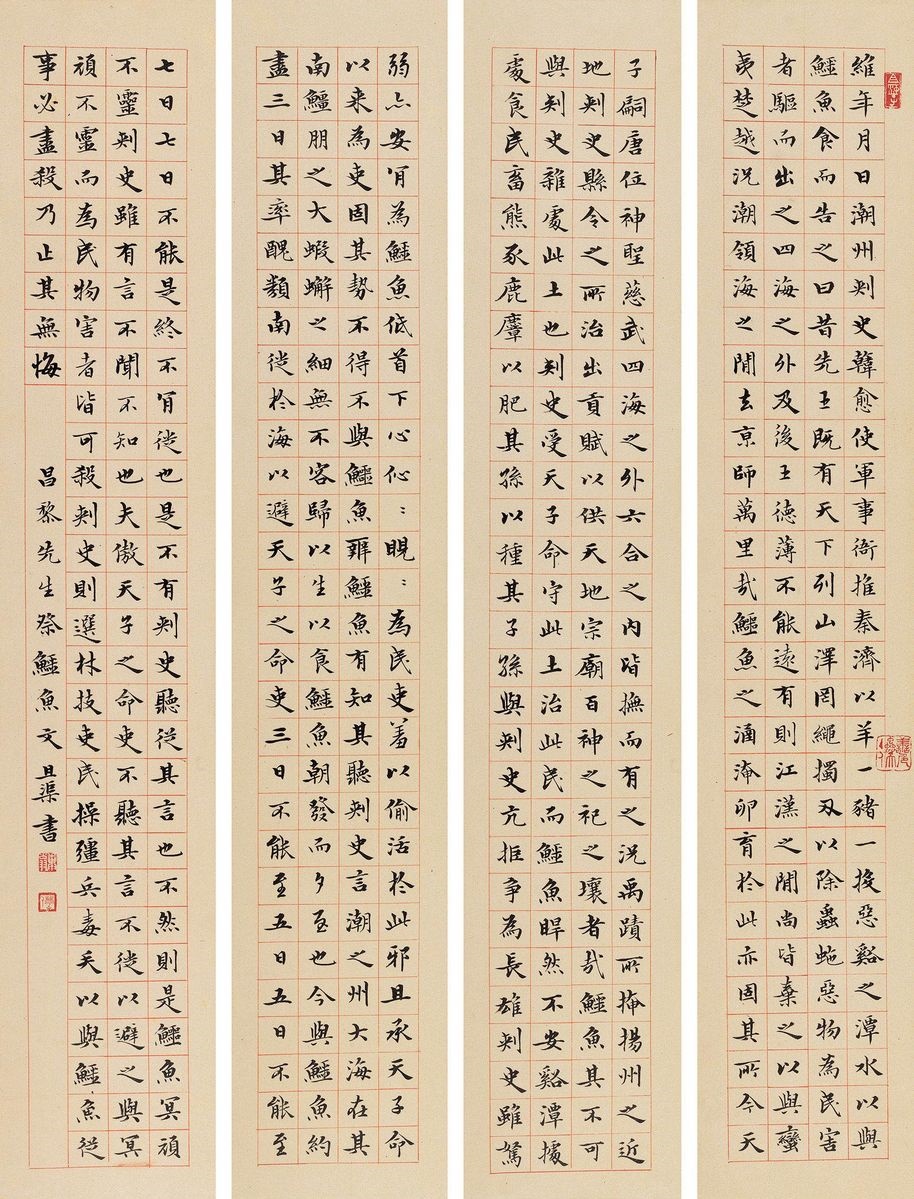 維年月日潮州刺史韓愈使軍事衙推秦濟以羊一豬一投惡谿之潭水以與
鱷魚食而告之曰昔先王既有天下列山澤罔繩擉刃以除蟲蛇惡物為民害
者驅而出之四海之外及後王德薄不能遠有則江漢之閒尚皆棄之以與蠻
夷楚越況潮領海之閒去京師萬里哉鱷魚之涵淹卵育於此亦固其所今天
子嗣唐位神聖慈武四海之外六合之內皆撫而有之況禹蹟所揜揚州之近
地刺史縣令之所治出貢賦以供天地宗廟百神之祀之壤者哉鱷魚其不可
與刺史雜處此土也刺史受天子命守此土治此民而鱷魚睅然不安谿潭據
處食民畜熊豕鹿麞以肥其孫以種其子孫與刺史亢拒爭為長雄刺史雖駑
弱亦安肯為鱷魚低首下心伈：睍：為民吏羞以偷活於此邪且承天子命
以來為吏固其勢不得不與鱷魚辨鱷魚有知其聽刺史言潮之州大海在其
南鱷朋之大蝦蠏之細無不容歸以生以食鱷魚朝發而夕至也今與鱷魚約
盡三日其率醜類南徙於海以避天子之命吏三日不能至五日五日不能至
七日七日不能是終不肯徙也是不有刺史聽從其言也不然則是鱷魚冥頑
不靈刺史雖有言不聞不知也夫傲天子之命吏不聽其言不徙以避之與冥
頑不靈而為民物害者皆可殺刺史則選材技吏民操彊兵毒矢以與鱷魚從
事必盡殺乃止其無悔
昌黎先生祭鱷魚文 且渠書